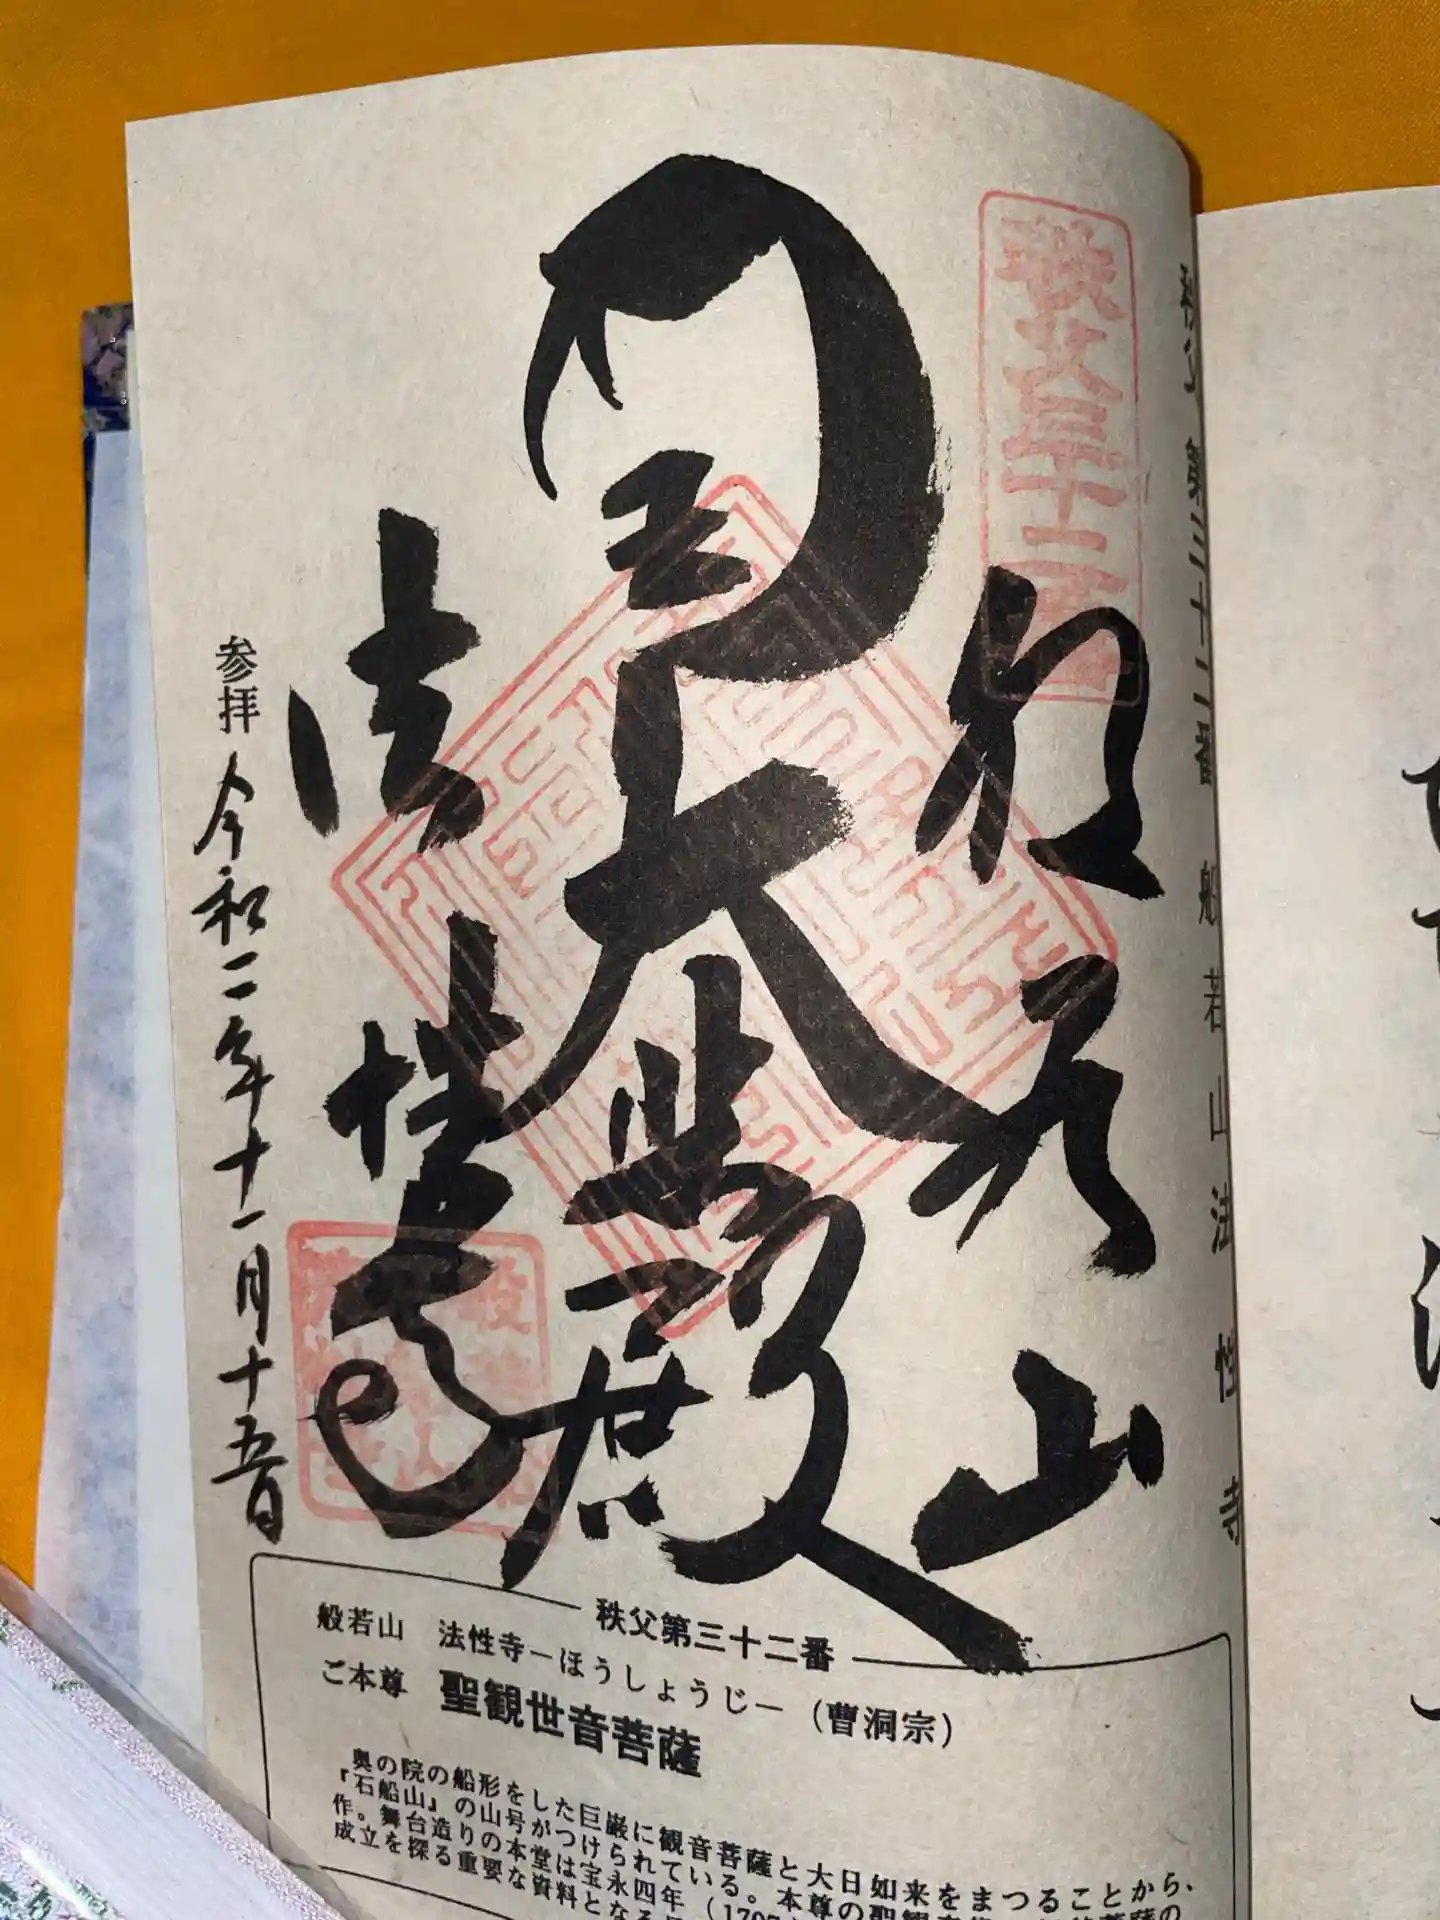 秩父三十二番
秩父 第三十二番 般若山 法性寺
般若山
大悲殿
法性寺
参拝 令和二年十一月十五日
秩父第三十二番
般若山 法性寺－ほうしょうじ－（曹洞宗）
ご本尊 聖観世音菩薩
奥の院の船形をした巨巌に観音菩薩と大日如来をまつることから、
『石船山』の山号がつけられている。本尊の聖観音
作。舞台造りの本堂は宝永四年（1707
成立を探る重要な資料となる